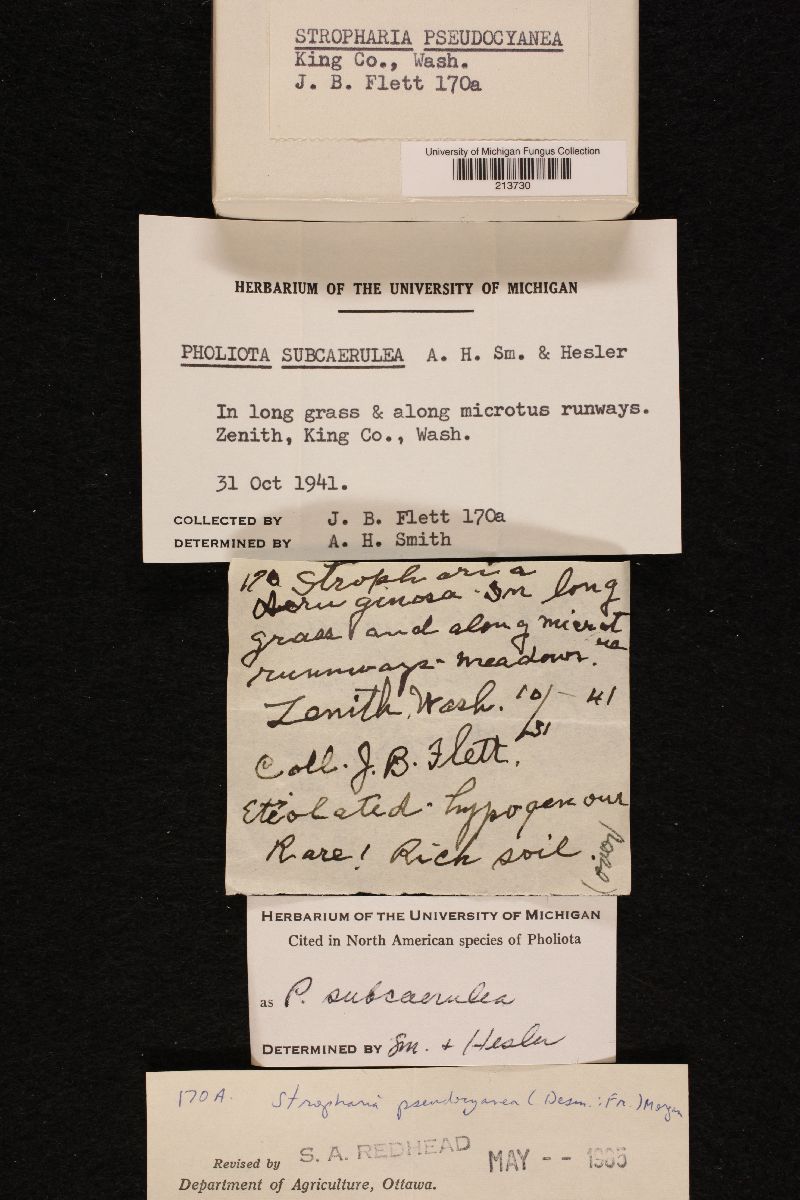 STROPHARIA PSEUDOCYANEA
King Co., Wash.
J. B. Flett 170a
University of Michigan Fungus Collection
213730
HERBARIUM OF THE UNIVERSITY OF MICHIGAN
PHOLIOTA SUBCAERULEA A. H. Sm. & Hesler
In long grass & along microtus runways.
Zenith, King Co., Wash.
31 Oct 1941.
COLLECTED BY J. B. Flett 170a
DETERMINED BY A. H. Smith
170 Stropharia
Aeruginosa - In long
grass and along microt
us
runnways - meadows.
Zenith, Wash. 10/31 - 41
Coll. J. B. Flett.
Etiolated - hypogenous
Rare! Rich soil.
HERBARIUM OF THE UNIVERSITY OF MICHIGAN
Cited in North American species of Pholiota
as P. subcaerulea
DETERMINED BY Sm. + Hesler
170A. Stropharia pseudocyanea (Desm.:Fr.) Morgan
Revised by S. A. REDHEAD MAY -- 1985
Department of Agriculture, Ottawa.